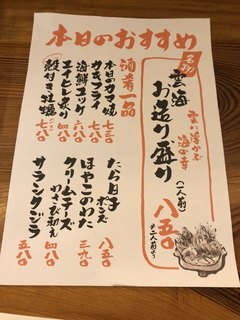 本日のおすすめ
名物
雲に浮かぶ
海の幸
雲海
お造り盛り
(一人前)
八五〇
酒肴一品
本日のカマ焼
七三〇
カキフライ
六八〇
海鮮ユッケ
七八〇
エイヒレ炙り
四八〇
殻付き牡蠣
七八〇
たら白子
ポン酢
八五〇
ほやこのわた
三九〇
クリームチーズ
わさび和え
四八〇
サラシクジラ
五八〇